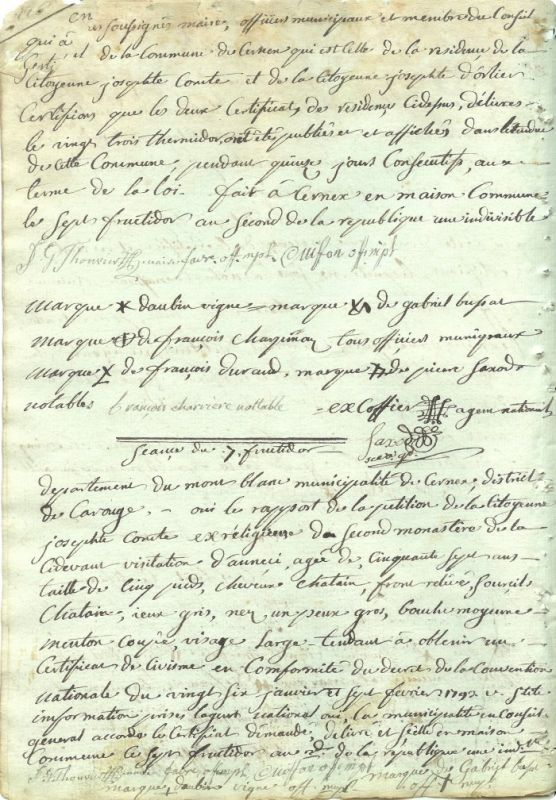 soussignés maire, officiers municipaux et membre du Conseil
qui à
de la Commune de Cernex qui est Celle de la residence de la
Citoyenne josephte Comte et de la Citoyenne josephte d'ortier
Certifions que les deux Certificats de residence Cidessus, délivrés
le vingt trois thermidor, ont étés publiés et affichés dans
de Cette Commune, pendant quinze jours Consecutifs, aux
terme de la loi. fait à Cernex en maison Commune
le sept fructidor au second de la republique une indivisible
J G Thouvier maire favre off mpl Cuifon off mpl
marque x daubin vigne marque de gabriel bussat
marque de françois tous officiers municipaux
marque de françois durand, marque de pierre saxod
notables françois charriere nottable excoffier agent national
saxod
Seance du 7 fructidor
departement du mont blanc municipalité de Cernex, district
de Carouge, - oui le rapport de la petition de la Citoyenne
josephte Comte exréligieuse du Second monastère de la
Cidevant visitation d'anneci, agée de Cinquante sept ans
taille de Cinq pieds, cheveux Chatain, front relévé, sourcils
Chatain, ieux gris, nez un peux gros, bouche moyenne
menton Coupé, visage large tendant à obtenir un
Certificat de Civisme en Conformité du decret de la Convention
nationale du vingt six janvier et sept fevrier 1792 v. stile
information prises lagent national oui, la municipalité en Conseil
general accorde le Certificat demandé, délivré et scellé en maison
Commune ce sept fructidor an 2d de la republique une
J G Thouvier maire favre off mpl Cuifon off mpl marque de Gabriel bussat
marque daubin vigne off mpl off mpl